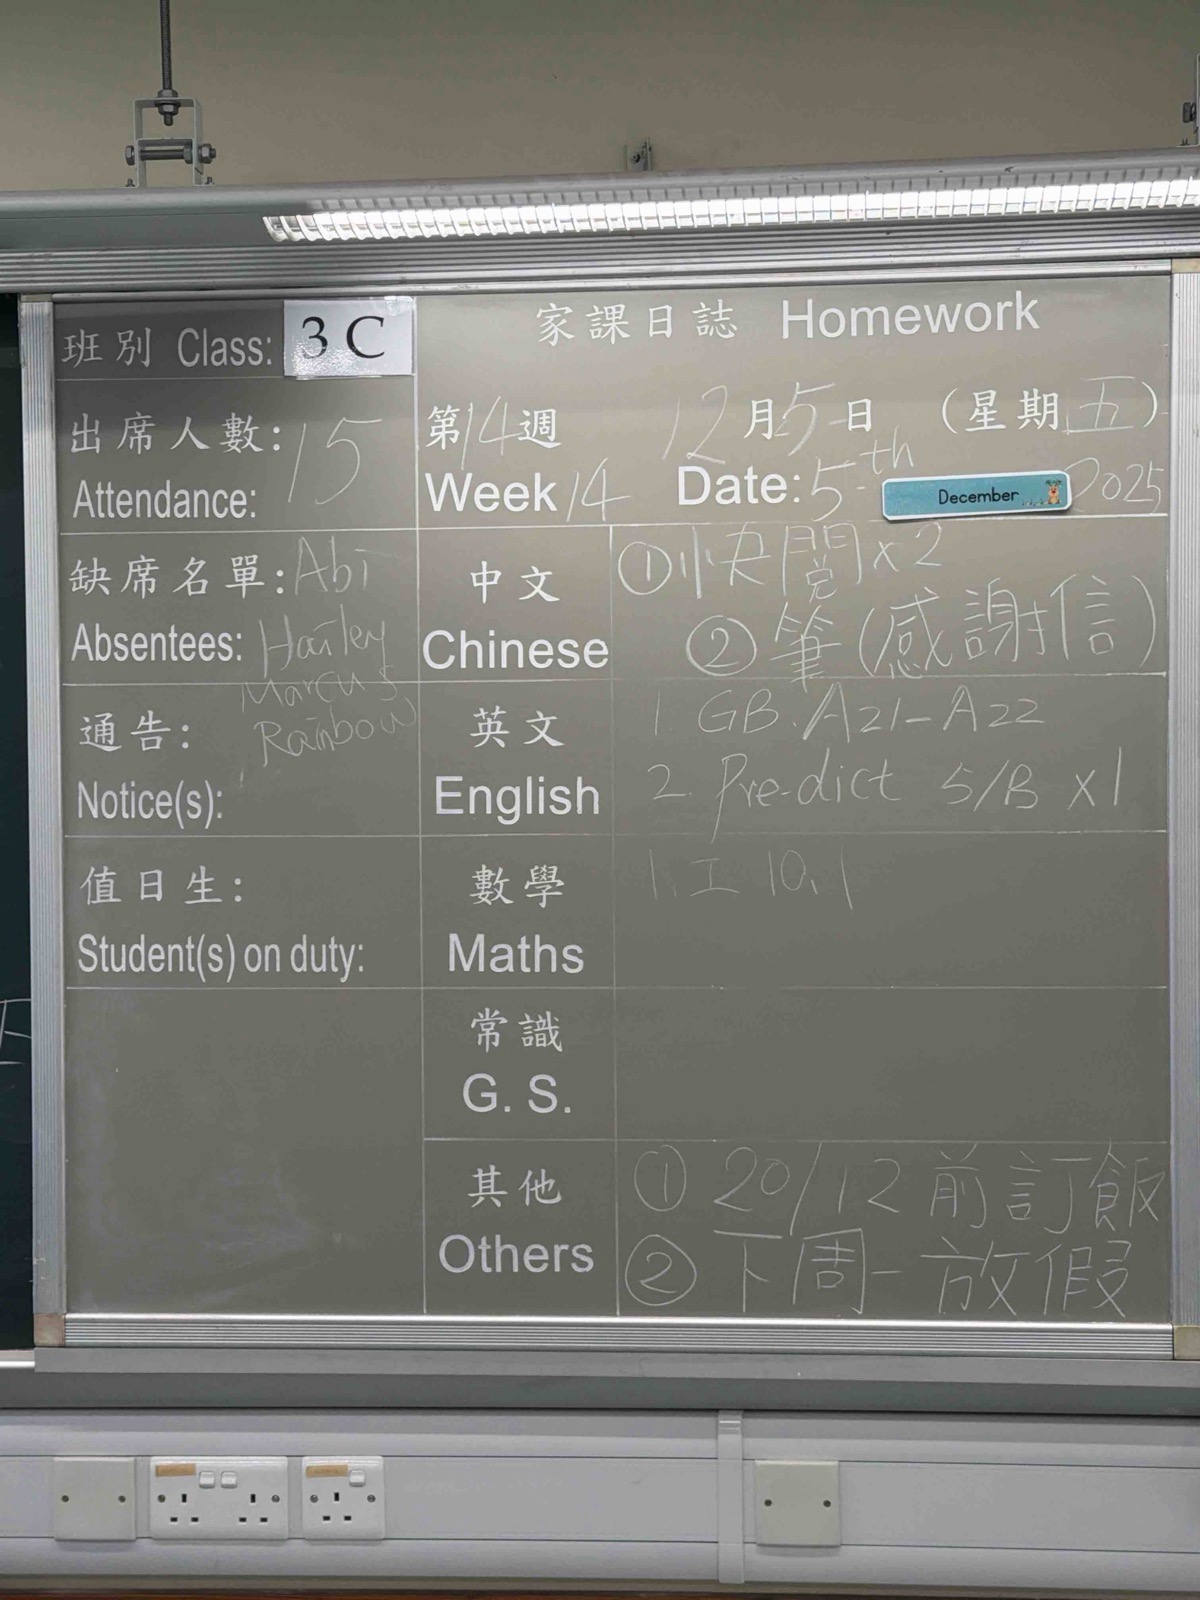 班別 Class: 3C
家課日誌 Homework
出席人數: 15
Attendance:
第14週 12月5日 (星期五)
Week 14 Date: 5th December 2025
缺席名單: Abi
Absentees: Hailey
Marcus
Rainbow
通告:
Notice(s):
值日生:
Student(s) on duty:
中文
Chinese
①快閱x2
②筆(感謝信)
英文
English
1. GB. A21-A22
2. Pre-dict S/B x1
數學
Maths
1. 工 10.1
常識
G. S.
其他
Others
① 20/12 前訂飯
② 下周一放假